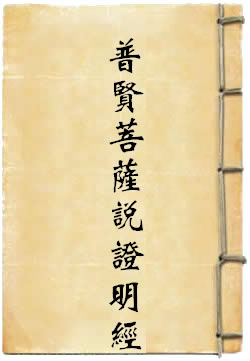 普賢菩薩説證明經